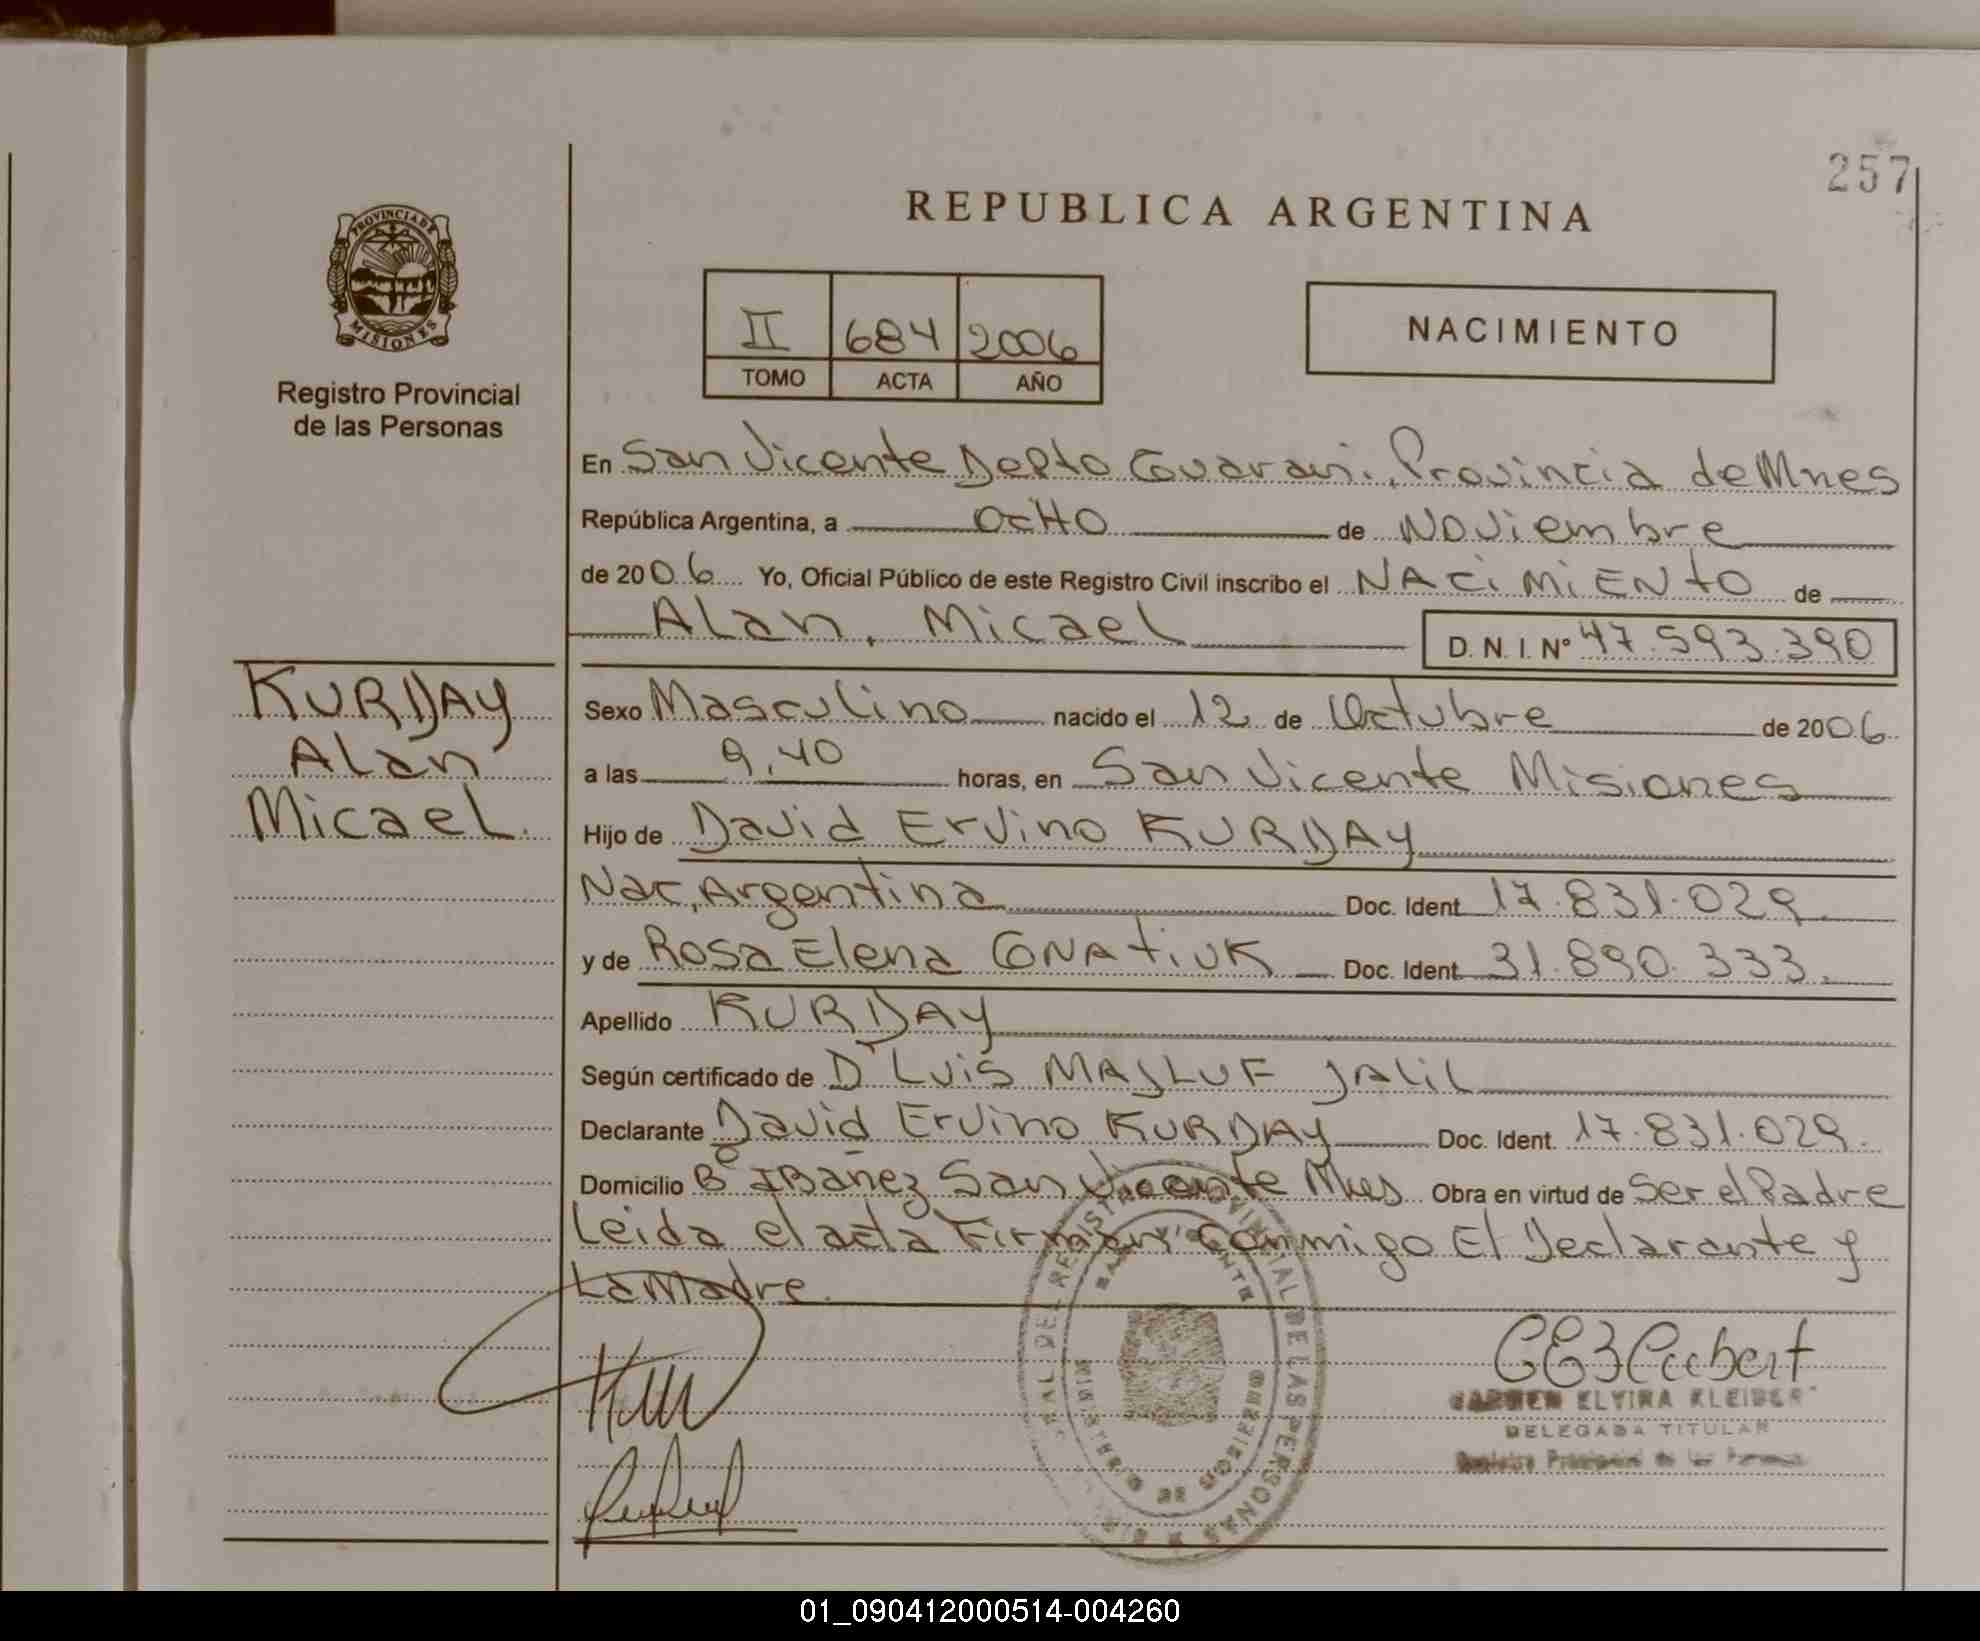 257
REPUBLICA ARGENTINA
PROVINCIA DE
MISIONES
Registro Provincial
de las Personas
II 684 2006
TOMO ACTA AÑO
NACIMIENTO
En San Vicente Depto Guarani. Provincia de Mnes
República Argentina, a OcHo de Noviembre
de 2006 Yo, Oficial Público de este Registro Civil inscribo el NACiMiENto de
Alan, Micael
D. N. I. Nº 47.593.390
KURDAY
Alan
Micael.
Sexo Masculino nacido el 12 de Octubre de 2006
a las 9,40 horas, en San Vicente Misiones
Hijo de David Ervino KURDAY
Nac, Argentina Doc. Ident 17.831.029
y de Rosa Elena GONAtiUK Doc. Ident 31.890.333.
Apellido KURDAY
Según certificado de Dr Luis MASLUF JALiL
Declarante David Ervino KURDAY Doc. Ident. 17.831.029.
Domicilio Bº IBañez San Vicente Mnes Obra en virtud de Ser el Padre
Leida el acta Firman Conmigo El Declarante y
La Madre.
CARMEN ELVIRA KLEIBER
DELEGADA TITULAR
Registro Provincial de las Personas
DEL REGISTRO PROVINCIAL DE LAS PERSONAS
SAN VICENTE
MINISTERIO DE GOBIERNO
01_090412000514-004260